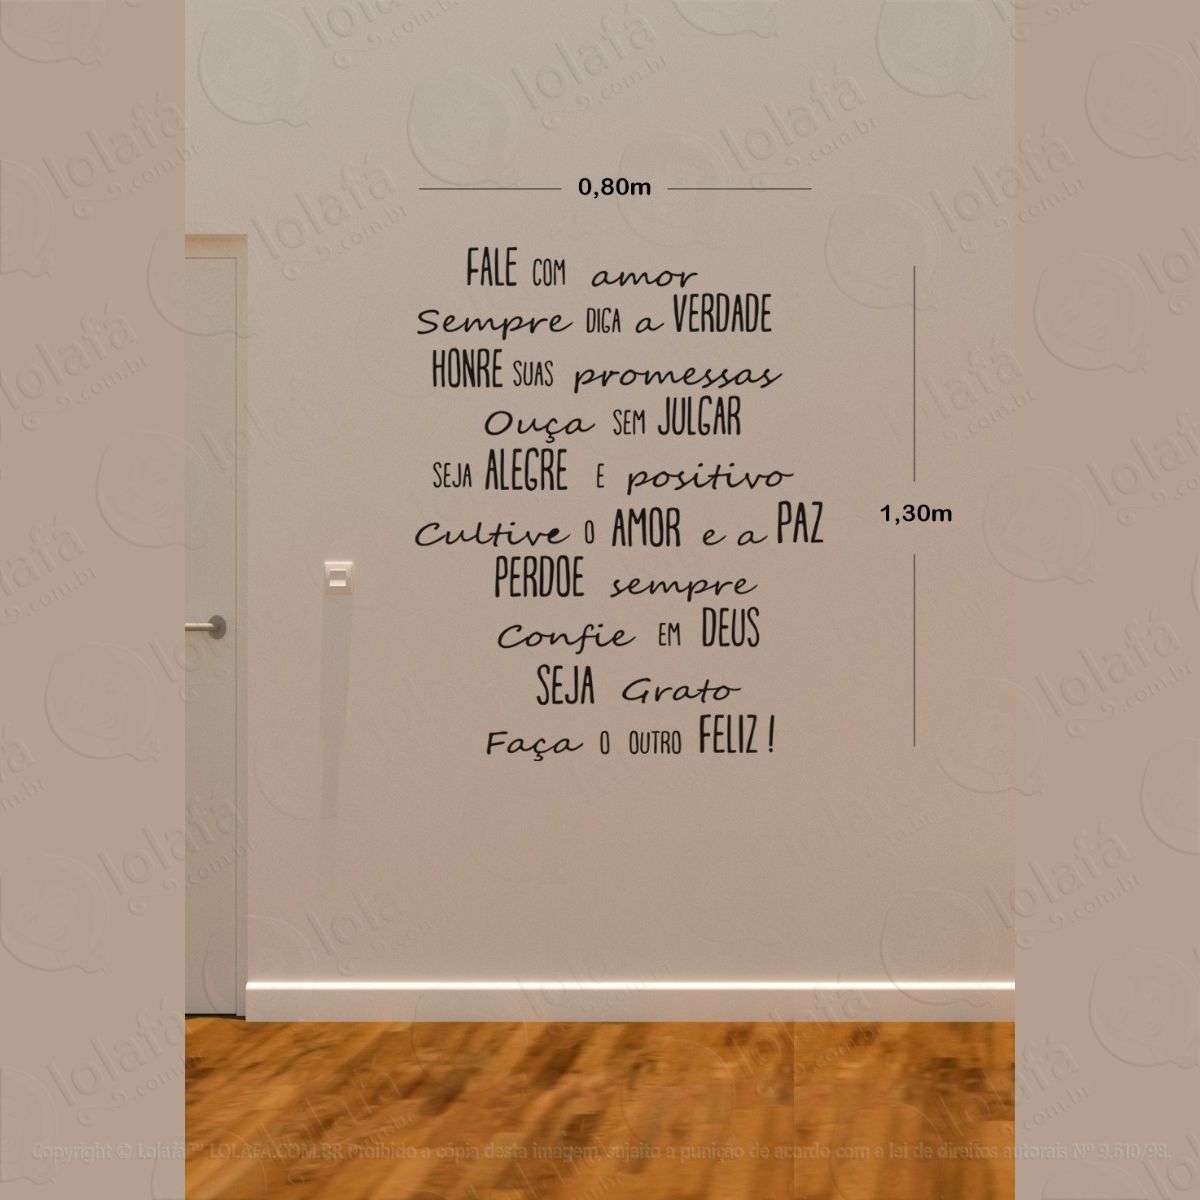 0,80m
FALE COM amor
Sempre DIGA a VERDADE
HONRE SUAS promessas
Ouça SEM JULGAR
SEJA ALEGRE E positivo
1,30m
Cultive O AMOR e a PAZ
PERDOE sempre
Confie EM DEUS
SEJA Grato
Faça O OUTRO FELIZ!
lolafá
.com.br
Copyright © Lolafá ™ LOLAFA.COM.BR Proibido a cópia desta imagem, sujeito a punição de acordo com a lei de direitos autorais Nº 9.610/98.